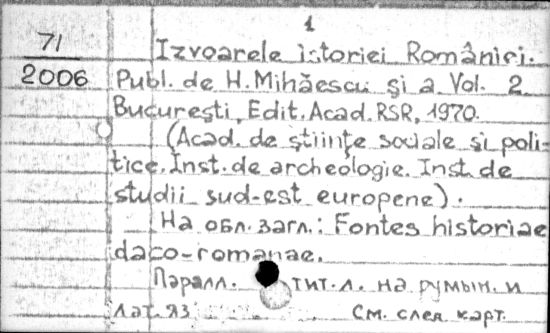 1
71
2006
Izvoarele istoriei României.
Publ. de H. Mihăescu și a. Vol. 2.
București, Edit. Acad. RSR, 1970.
(Acad. de științe sociale și poli-
tice. Inst. de archeologie. Inst. de
studii sud-est europene).
На обл. загл.: Fontes historiae
daco-romanae.
Паралл. тит. л. на румын. и
лат. яз. См. след. карт.